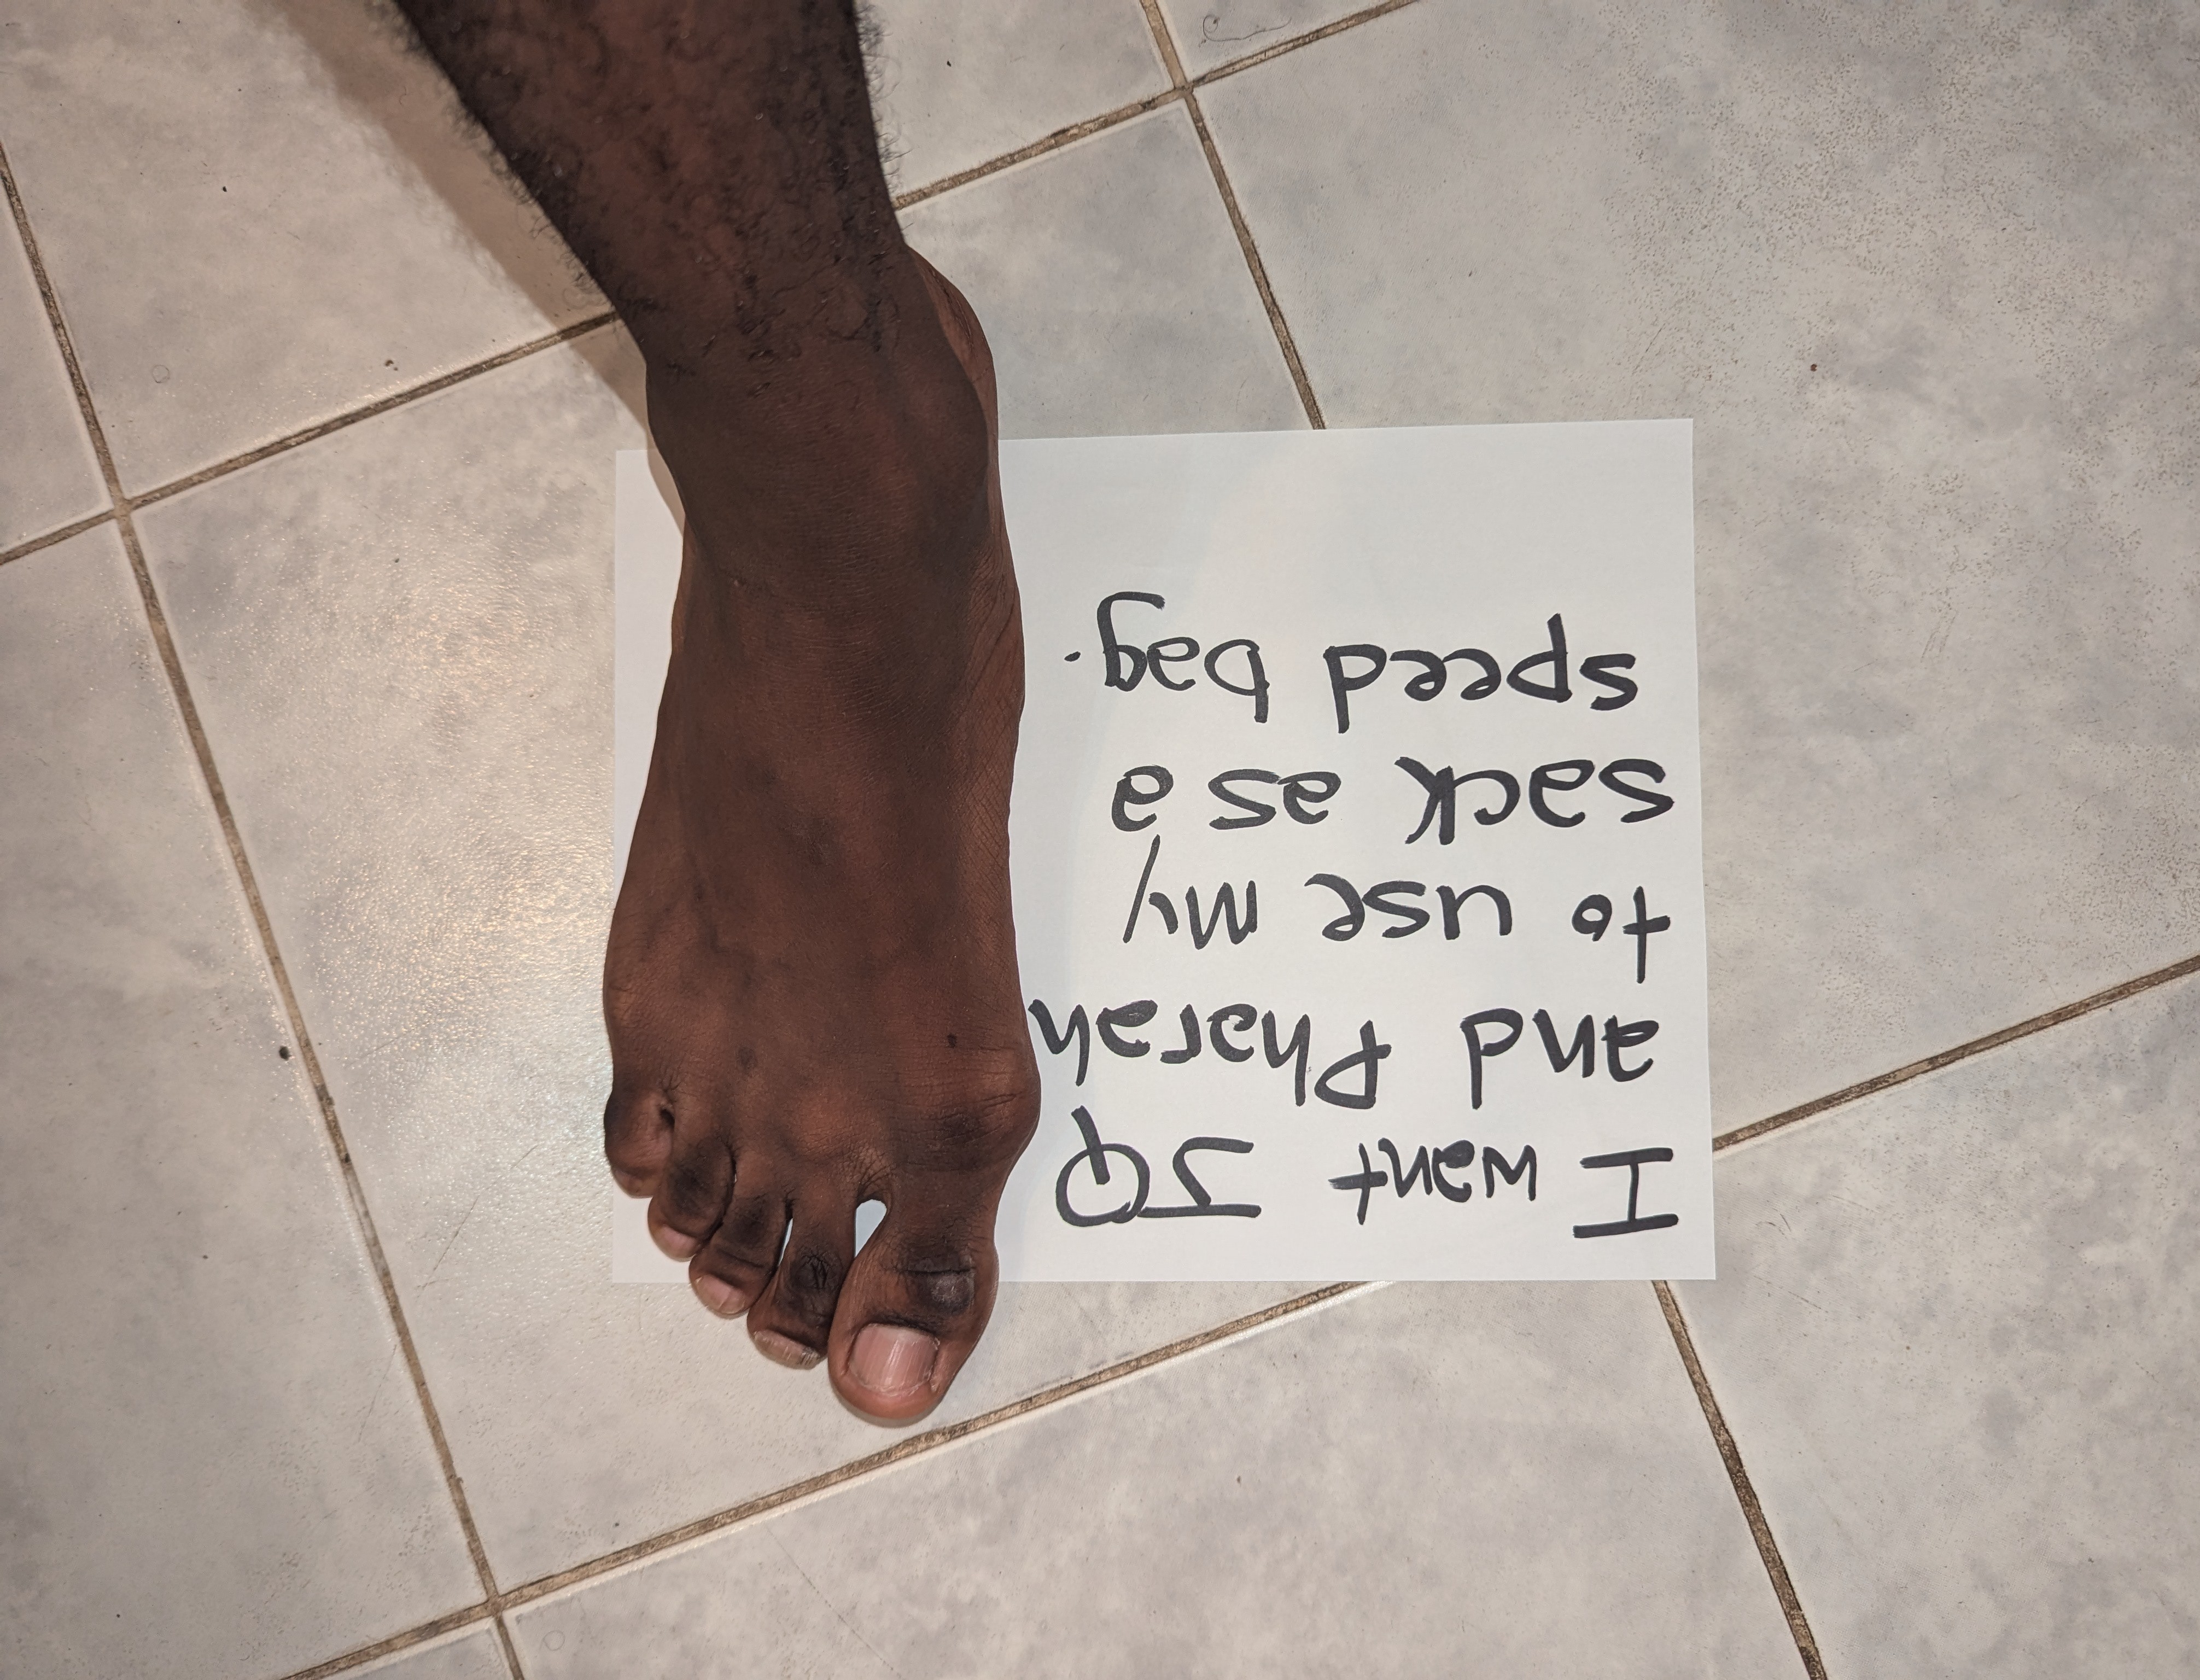 I want JQ
and Pharah
to use my
sack as a
speed bag.